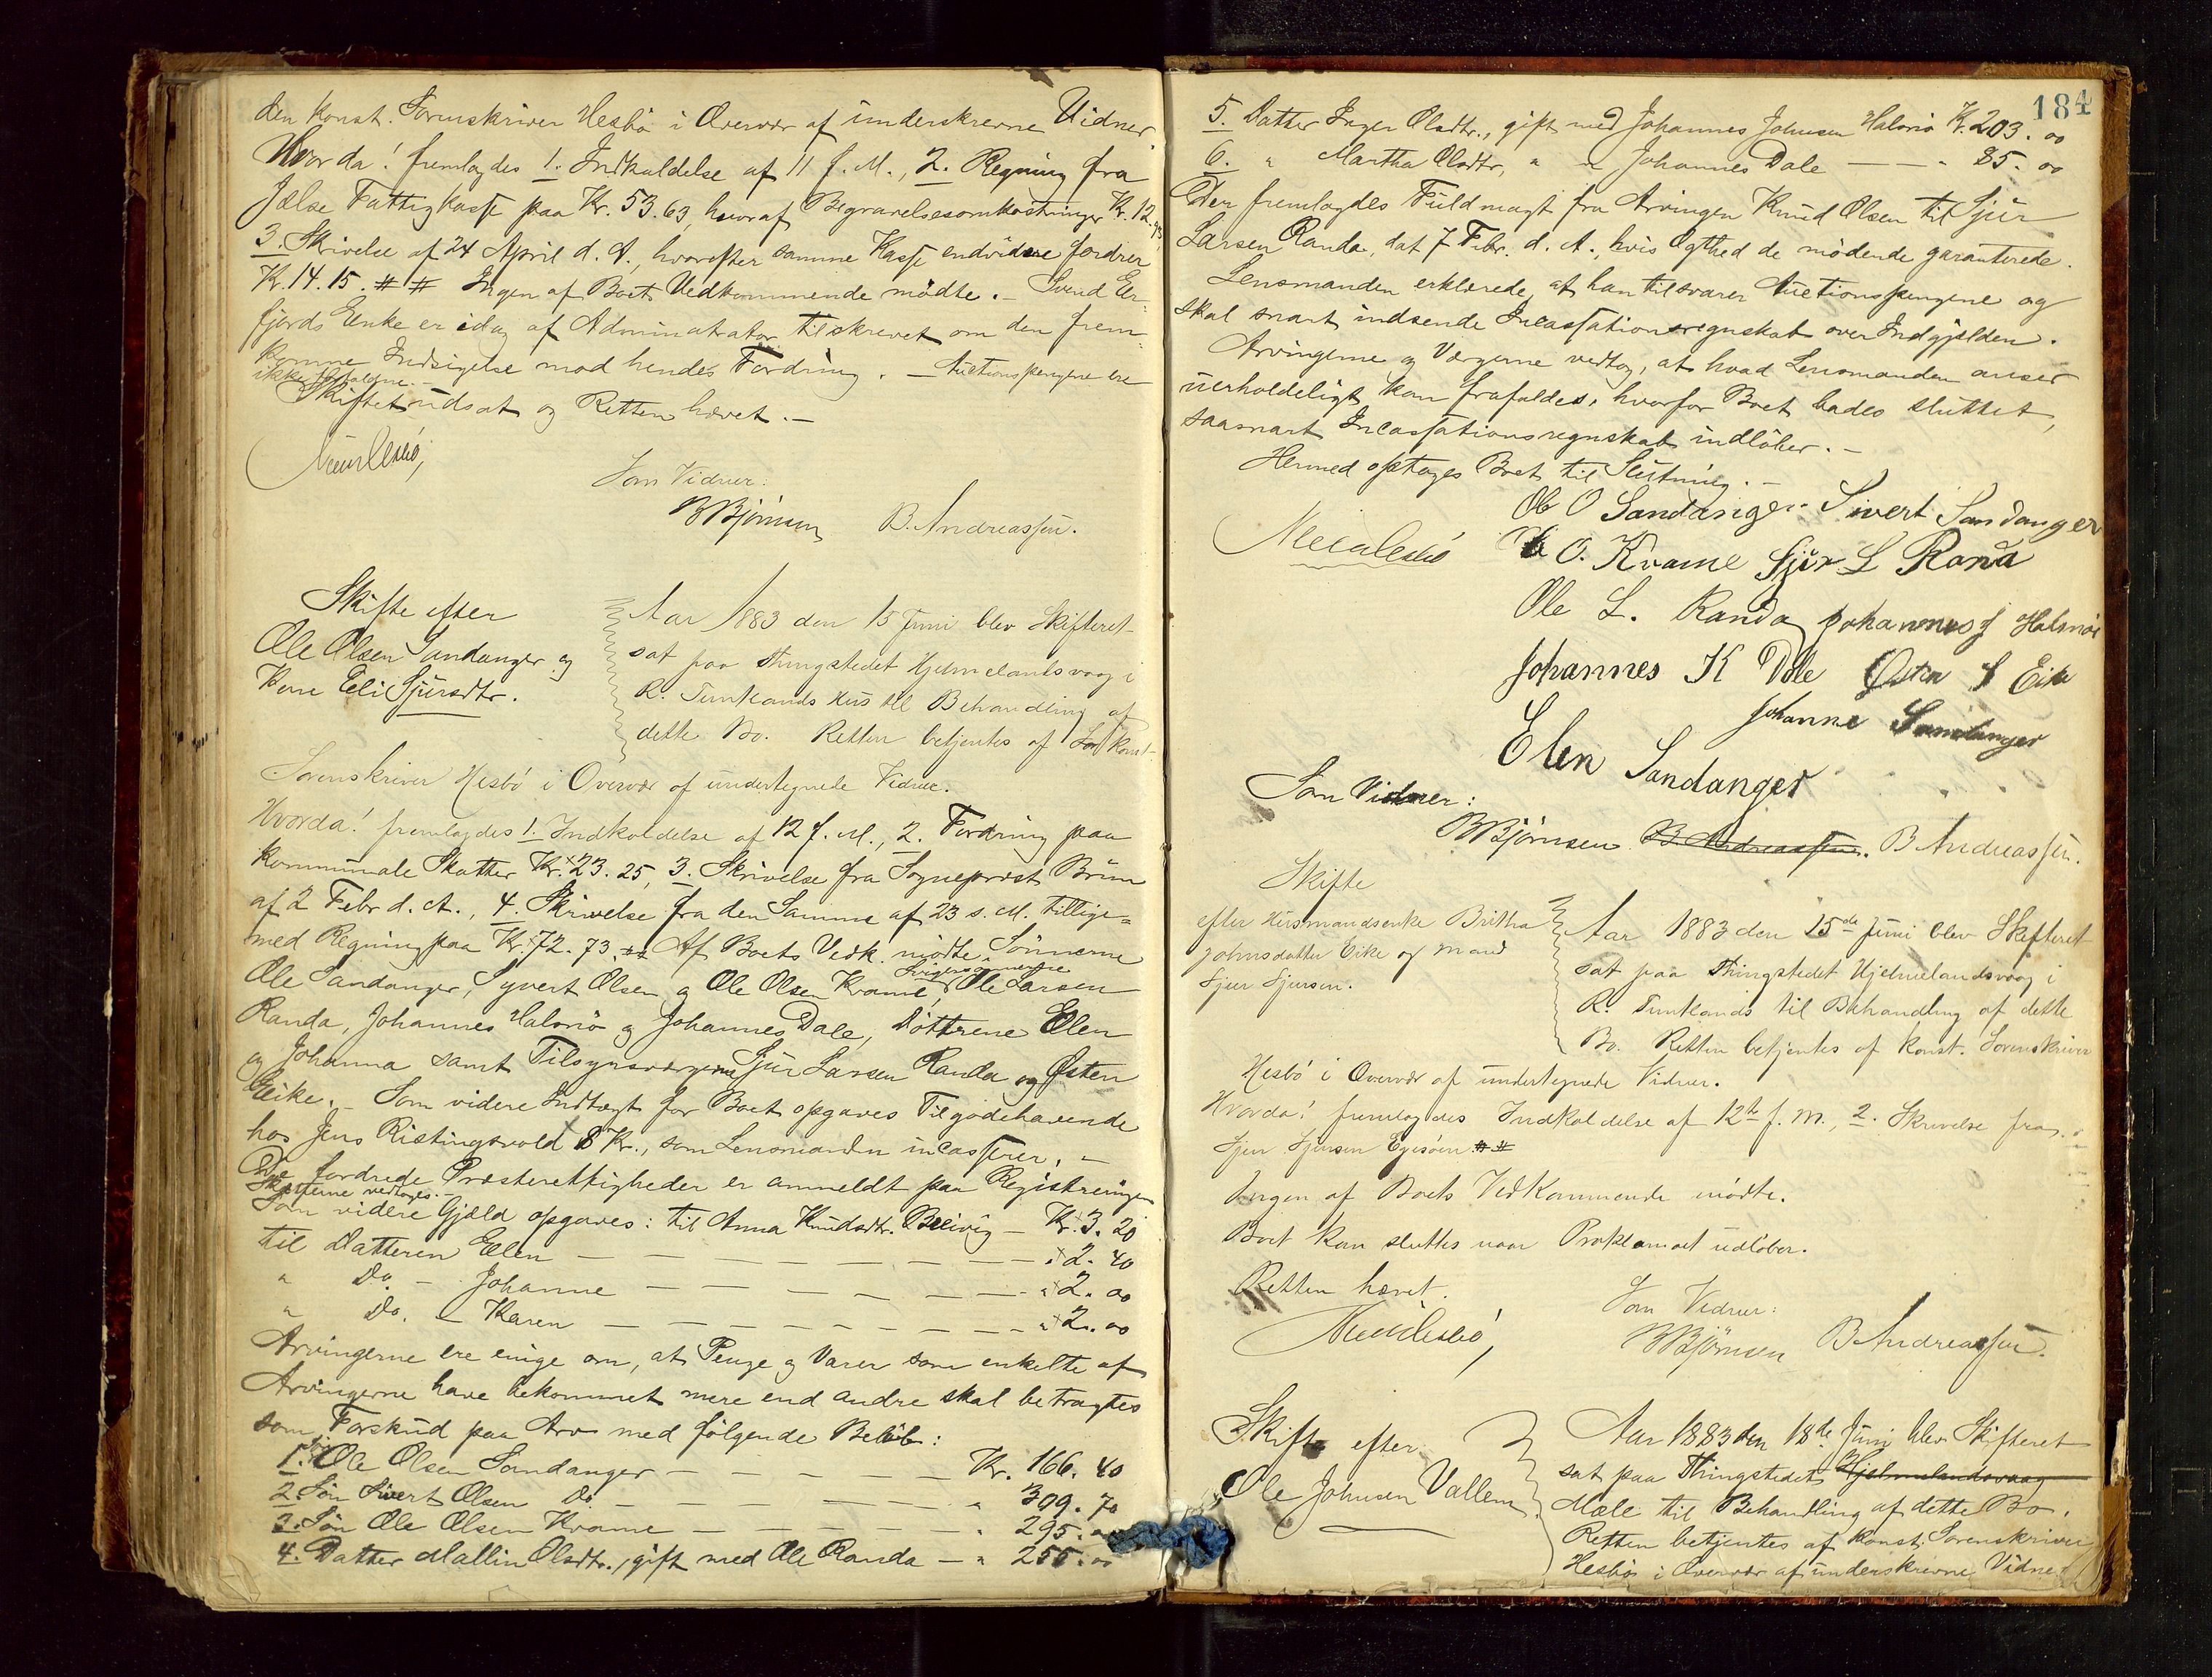 den konst. Sorenskriver Hesbö i Overvær af underskrevne Vidner.
Hvorda! fremlagdes 1. Indkaldelse af 11 f. M., 2. Regning fra
Jelse Fattigkasse paa Kr. 53.63, hvoraf Begravelsesomkostninger Kr. 12.
3. Skrivelse af 24 April d. A., hvorefter samme Kasse endvidere fordrer
Kr. 14.15. # # Ingen af Boets Vedkommende mödte. - Svend Eer-
fjords Enke er idag af Administrator tilskrevet om den frem-
komne Indsigelse mod hendes Fordring. - Auctionspengene ere
ikke forfaldne. -
Skiftet udsat og Retten hævet. -
Som Vidner:
B Björnsen B. Andreassen.
Skifte efter
Ole Olsen Sandanger og
Kone Eli Sjursdtr.
Aar 1883 den 15 Juni blev Skifteret
sat paa Thingstedet Hjelmelandsvaag i
R. Tuntlands Hus til Behandling af
dette Bo. Retten betjentes af konst.
Sorenskriver Hesbö i Overvær af undertegnede Vidner.
Hvorda! fremlagdes 1. Indkaldelse af 12 f. M., 2. Fordring paa
kommunale Skatter Kr. 23.25, 3. Skrivelse fra Sogneprest Brun
af 2 Febr d. A., 4. Skrivelse fra den Samme af 23 s. M. tillige-
med Regning paa Kr. 72.73. # Af Boets Vedk. mödte Sönnerne
Ole Sandanger, Syvert Olsen og Ole Olsen Krame, Svigersønnerne Ole Larsen
Randa, Johannes Halsnö og Johannes Dale, Döttrene Elen
og Johanna samt Tilsynsværgerne Sjur Larsen Randa og Østen
Eike. - Som videre Indtægt for Boet opgaves Tilgodehavende
hos Jens Ristingsvold 8 Kr., som Lensmanden incasserer. -
De fordrede Presterettigheder er anmeldt paa Registreringen
Skatterne vedtoges. -
Som videre Gjæld opgaves: til Anna Knudsdtr. - Kr. 3.20
til Datteren Elen - - - - - - - - " 2.40
" Do. - Johanne - - - - - - - " 2.00
" Do. - Karen - - - - - - - - " 2.00
Arvingerne ere enige om, at Penge og Varer som enkelte af
Arvingerne have bekommet mere end andre skal betragtes
som Forskud paa Arv med fölgende Belöb:
1. Sön Ole Olsen Sandanger - - - - - Kr. 166.40
2. Sön Sivert Olsen Do. - - - - - " 399.70
3. Sön Ole Olsen Krame - - - - - " 295.00
4. Datter Mallin Olsdtr., gift med Ole Randa - " 255.00
184
5. Datter Inger Olsdtr., gift med Johannes Johnsen Halsnö Kr. 203.00
6. " Martha Olsdtr, " " Johannes Dale - - " 85.00
Der fremlagdes Fuldmagt fra Arvingen Knud Olsen til Sjur
Larsen Randa, dat 7 Febr. d. A., hvis Ægthed de mödende garanterede.
Lensmanden erklærede, at han tilsvarer Auctionspengene og
skal snart indsende Incassationsregnskab over Indgjælden.
Arvingerne og Værgerne vedtog, at hvad Lensmanden anser
uerholdeligt kan frafaldes, hvorfor Boet bades sluttet,
saasnart Incassationsregnskab indlöber. -
Hermed optages Boet til Slutning. -
Ole O Sandanger Sivert Sandanger
O. Krame Sjur L Randa
Ole L. Randa Johannes J Halsnöe
Johannes K Dale Østen S Eike
Johanne Sandanger
Elen Sandanger
Som Vidner:
B Björnsen B Andreassen. B Andreassen.
Skifte
efter Husmandsenke Britha
Johnsdatter Eike og Mand
Sjur Sjursen.
Aar 1883 den 15de Juni blev Skifteret
sat paa Thingstedet Hjelmelandsvaag i
R. Tuntlands til Behandling af dette
Bo. Retten betjentes af konst. Sorenskriver
Hesbö i Overvær af undertegnede Vidner.
Hvorda! fremlagdes Indkaldelse af 12te f. M., 2. Skrivelse fra
Sjur Sjursen # #
Ingen af Boets Vedkommende mödte.
Boet kan sluttes naar Proklamaet udlöber.
Retten hævet.
Som Vidner:
B Björnsen B Andreassen.
Skifte efter
Ole Johnsen Vallem.
Aar 1883 den 18de Juni blev Skifteret
sat paa Thingstedet Hjelmelandsvaag
Male til Behandling af dette Bo.
Retten betjentes af konst. Sorenskriver
Hesbö i Overvær af underskrevne Vidner